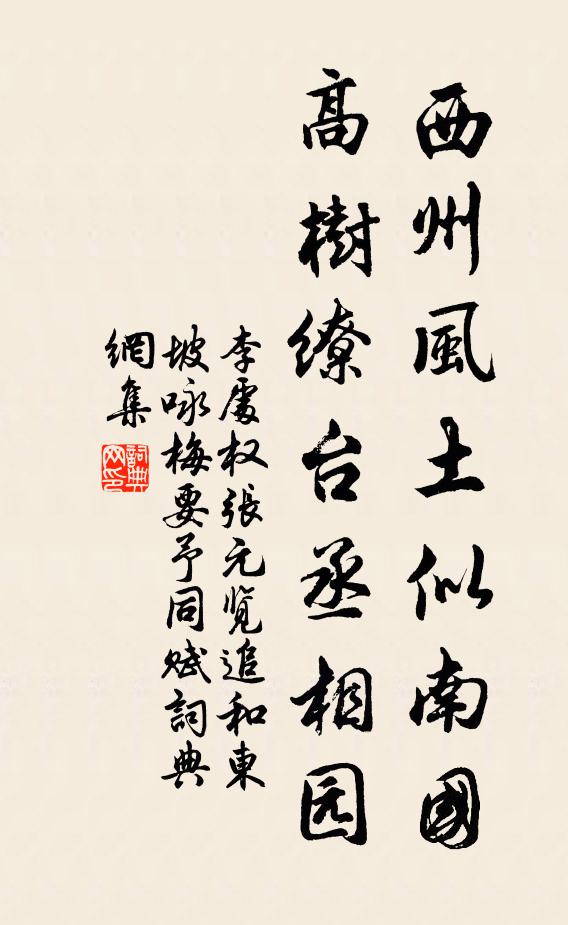 西州風土似南國
高樹繚台丞相园
李處权張元覧追和東
坡咏梅要予同赋詞典
網集
詞典网印